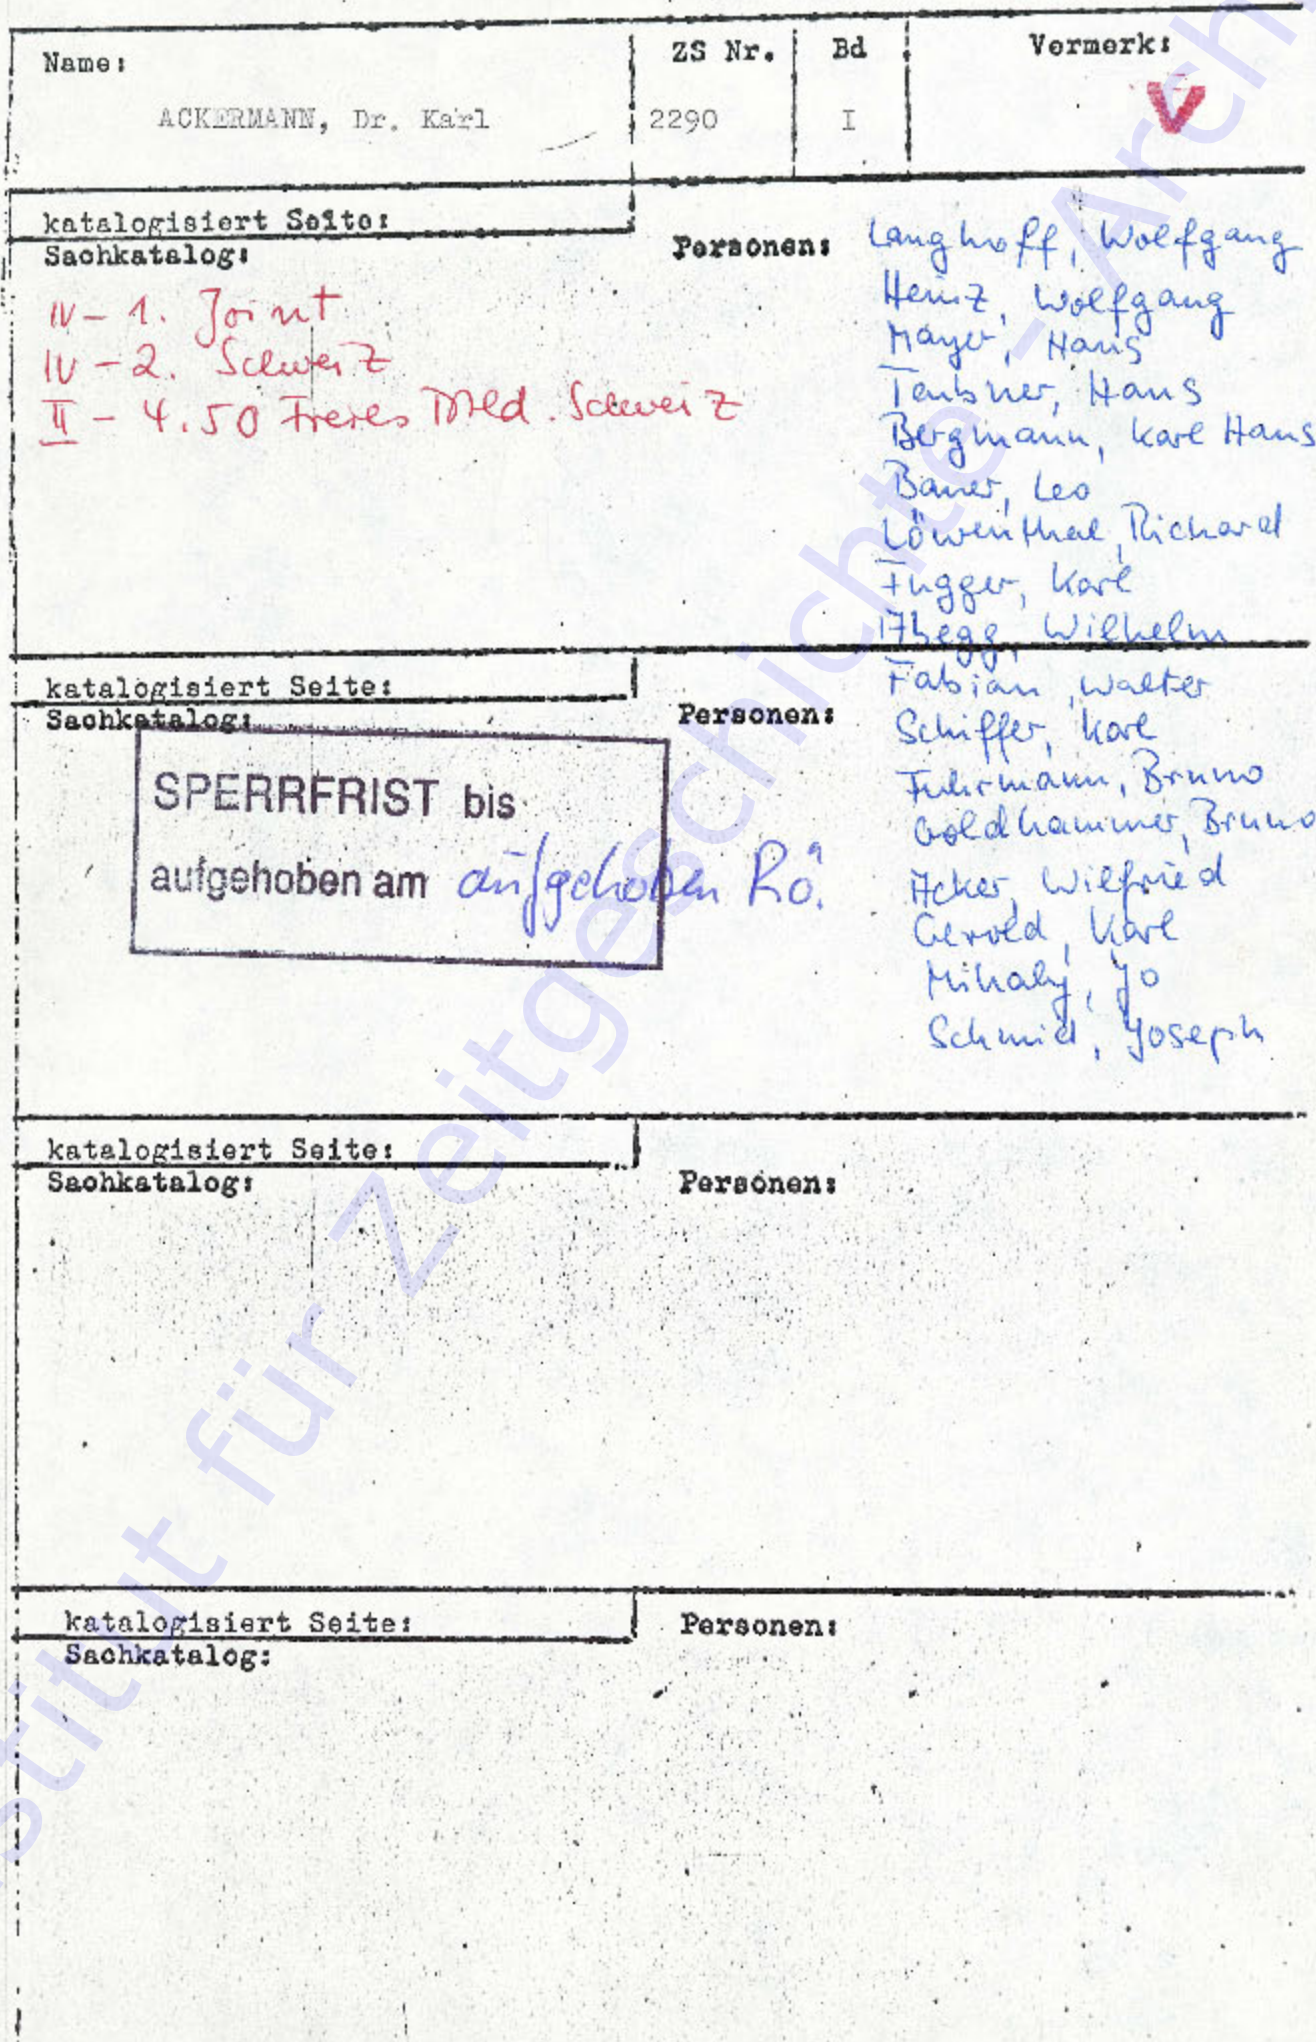 Name:
ZS Nr.
Bd
Vermerk:
ACKERMANN, Dr. Karl
2290
I
V
katalogisiert Seite:
Sachkatalog:
Personen:
IV - 1. Joint
IV - 2. Schweiz
II - 4.50 Freies Dtld. Schweiz
Langhoff, Wolfgang
Heinz, Wolfgang
Mayer, Hans
Teubner, Hans
Bergmann, Karl Hans
Bauer, Leo
Löwenthal, Richard
Fugger, Karl
Abegg, Wilhelm
Fabian, Walter
Schiffer, Karl
Fuhrmann, Bruno
Goldhammer, Bruno
Acker, Wilfried
Gerold, Karl
Mihaly, Jo
Schmid, Joseph
katalogisiert Seite:
Sachkatalog:
Personen:
SPERRFRIST bis
aufgehoben am aufgehoben Rö.
katalogisiert Seite:
Sachkatalog:
Personen:
katalogisiert Seite:
Sachkatalog:
Personen:
stitut für Zeitgeschichte - Arch